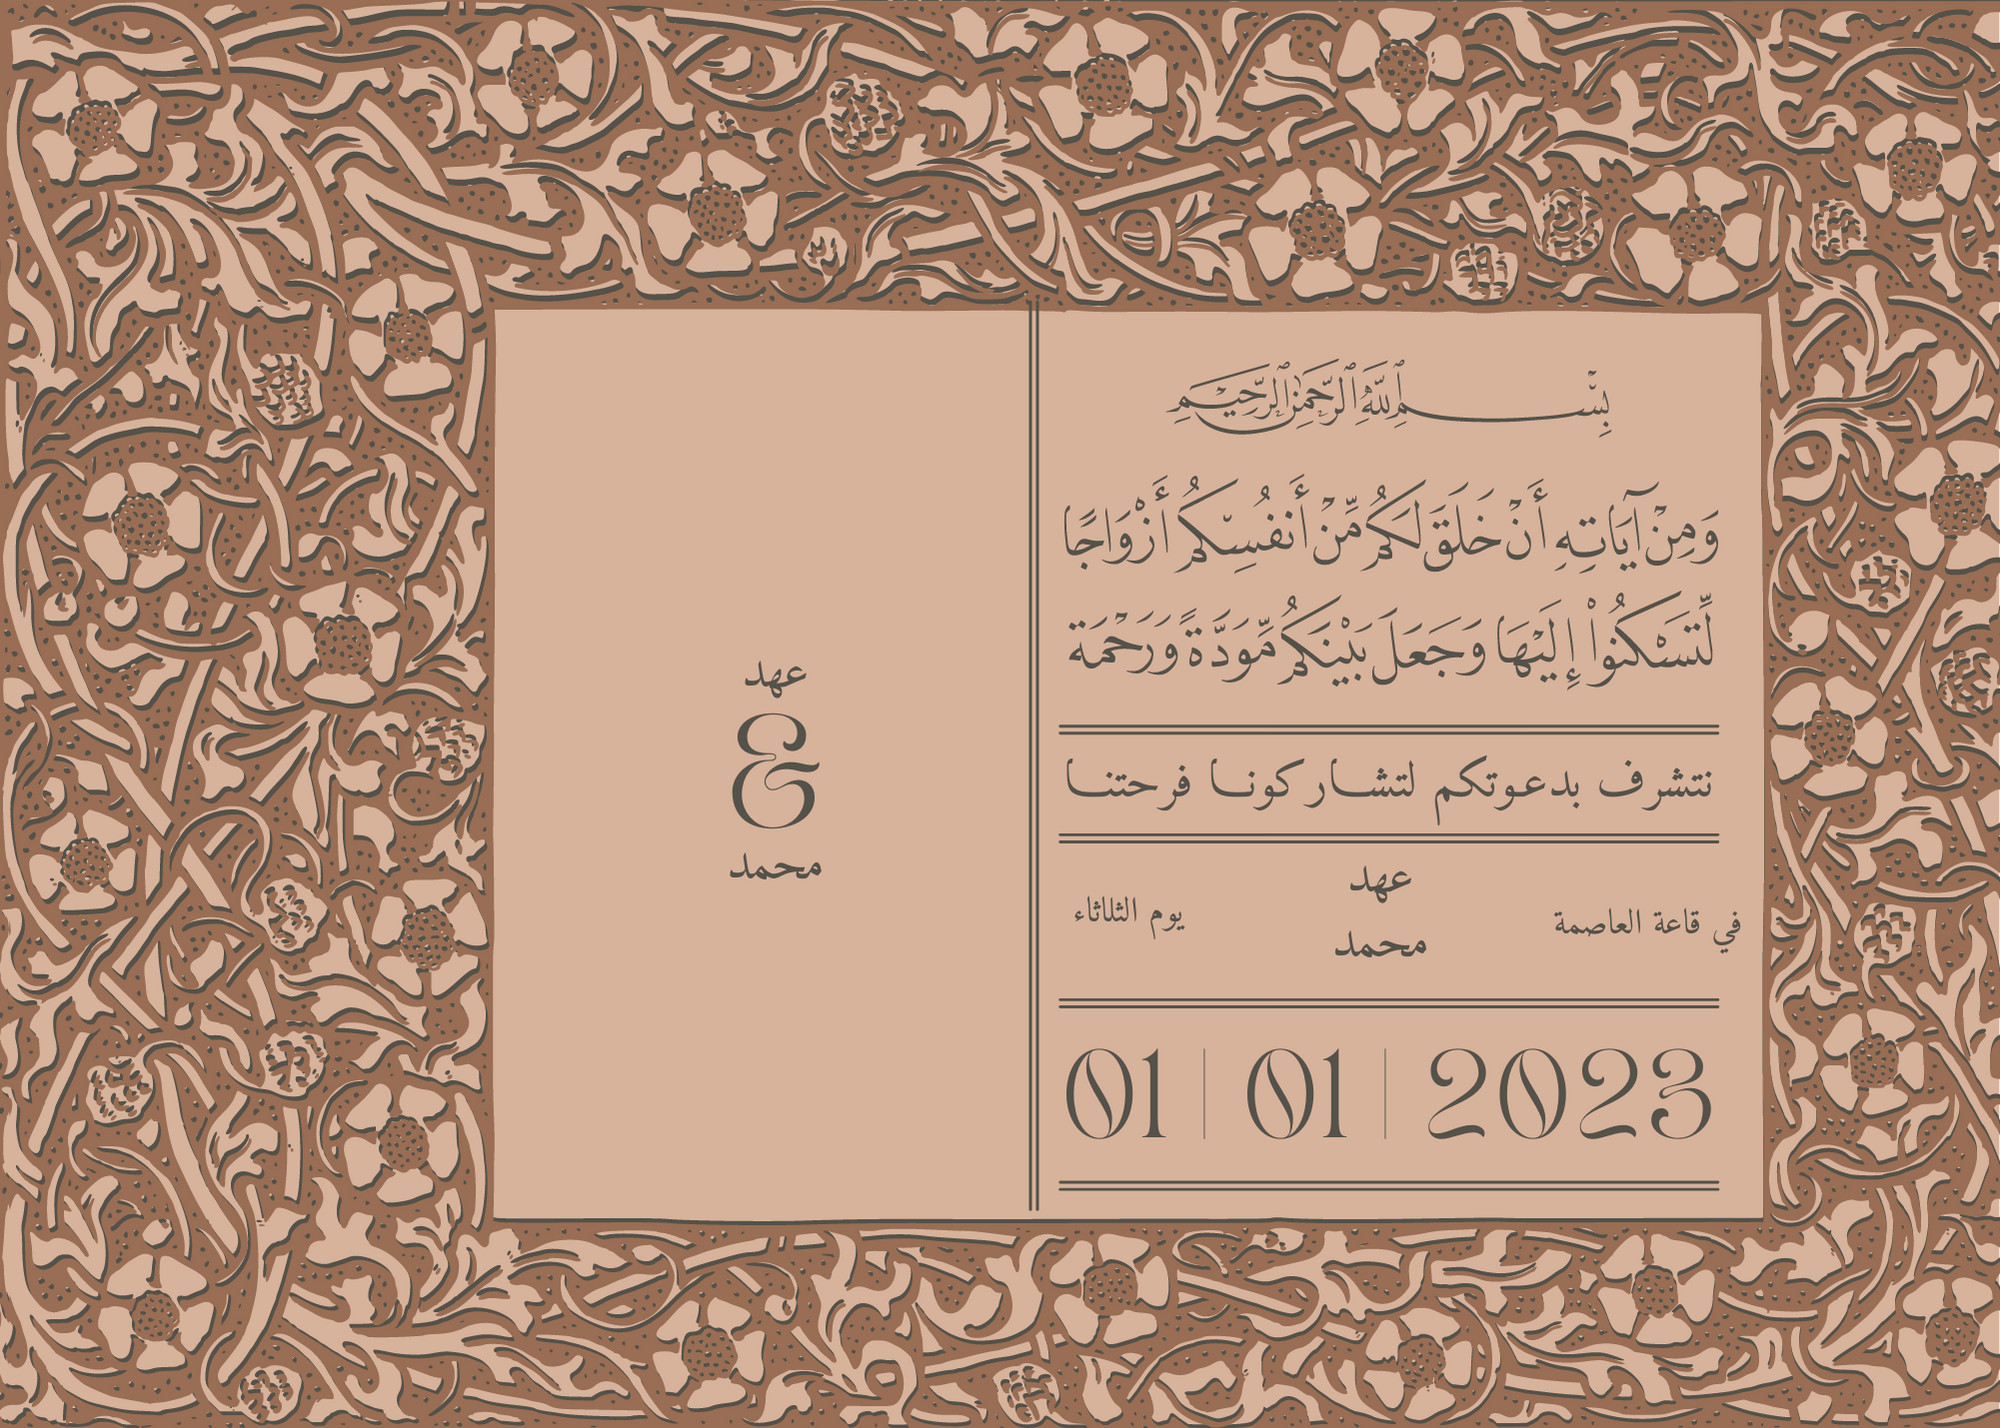 بِسْـــــمِ اللَّهِ الرَّحْمَٰنِ الرَّحِيمِ
وَمِنْ آيَاتِهِ أَنْ خَلَقَ لَكُم مِّنْ أَنفُسِكُمْ أَزْوَاجًا
لِّتَسْكُنُوا إِلَيْهَا وَجَعَلَ بَيْنَكُم مَّوَدَّةً وَرَحْمَة
نتشرف بدعوتكم لتشاركونا فرحتنا
في قاعة العاصمة
عهد
محمد
يوم الثلاثاء
01 | 01 | 2023
عهد
&
محمد